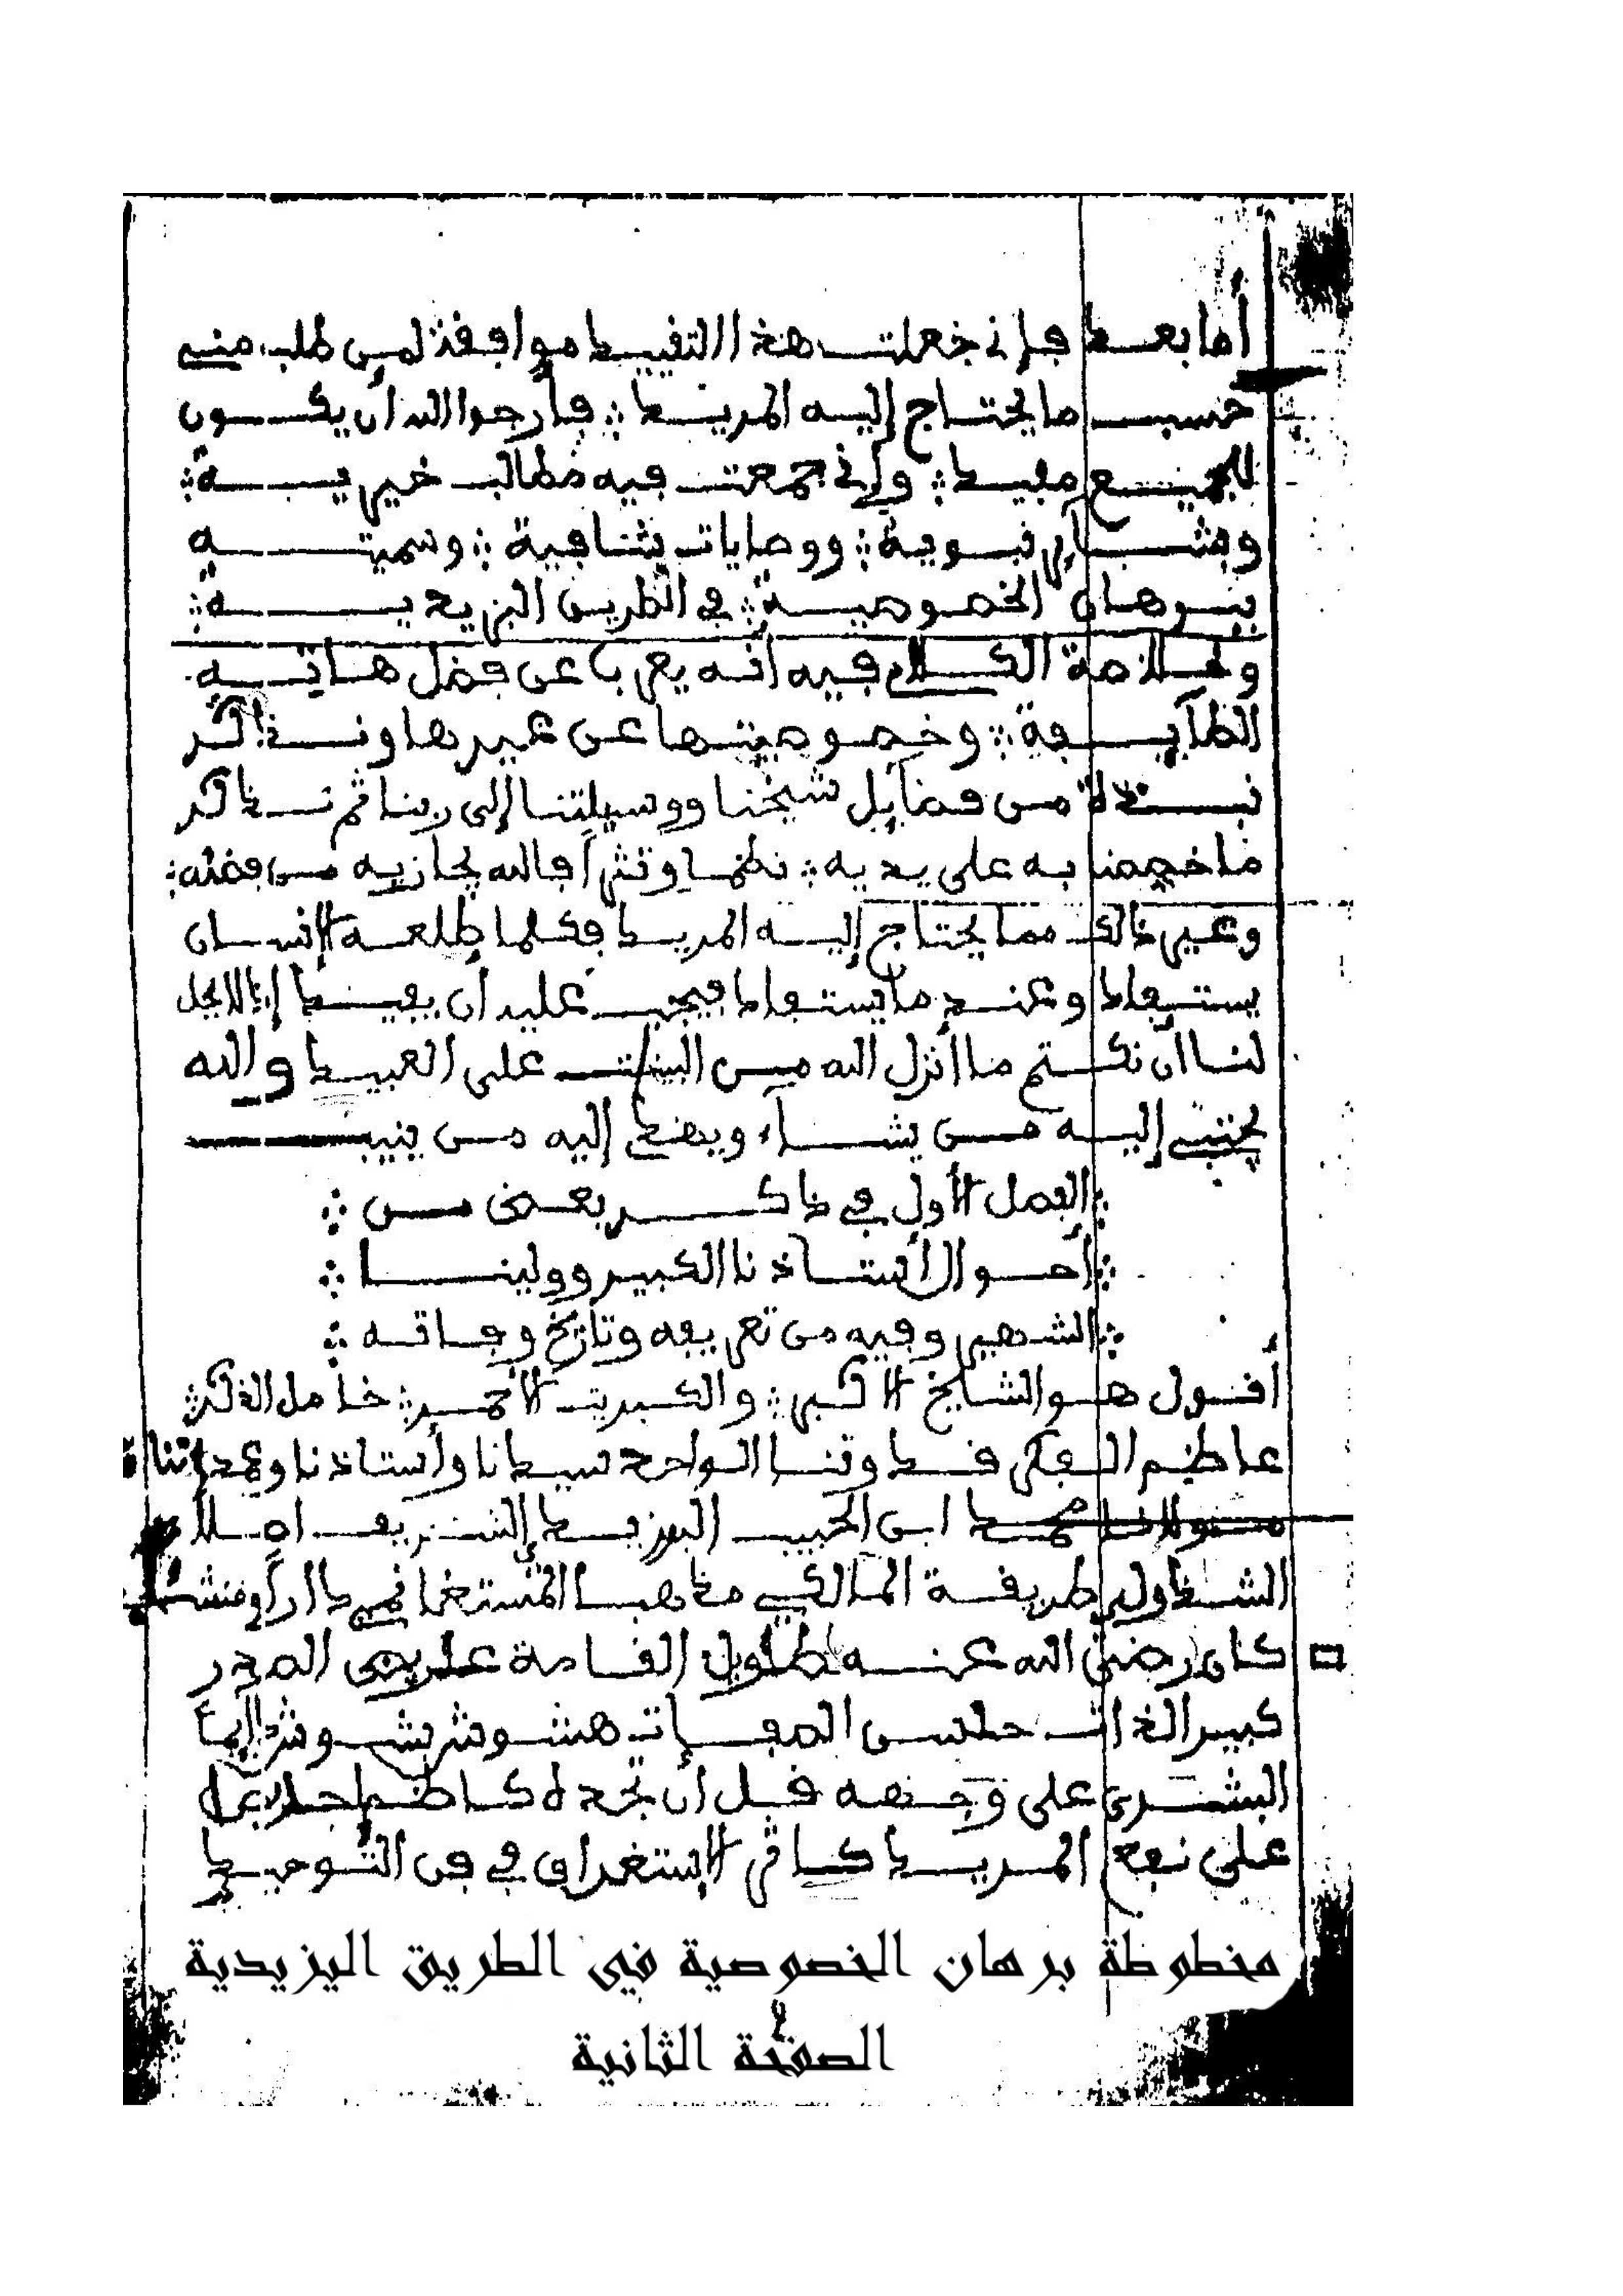 أما بعد فإني جعلت هذا التقييد موافقة لمن طلب مني
حسب ما يحتاج إليه المريد ؞ فأرجوا الله أن يكون
للجميع مفيد ؞ وإني جمعت فيه مطالب خيرية ؞
وبشائر نبوية ؞ ووصايات شافية ؞ وسميته
ببرهان الخصوصية ؞ في الطريق اليزيدية ؞
وخلاصة الكلام فيه أنه يعرب عن فضل هاته
الطآيفة ؞ وخصوصيتها عن غيرها ونذاكر
نبذة من فضآيل شيخنا ووسيلتنا إلى ربنا ثم نذاكر
ما خصصنا به على يديه ؞ نظما ونثرا فالله يجازيه من فضله ؞
وغير ذالك مما يحتاج إليه المريد فكلما طلعه الإنسان
يستفاد وعند ما يستفاد فيجب عليه أن يفيد إذ لا يحل
لنا أن نكتم ما أنزل الله من البينات على العبيد والله
يجتبي إليه من يشاء ويهدي إليه من ينيب
؞ الفصل الأول في ذاكر بعض من ؞
؞ أحوال أستاذنا الكبير وولينا ؞
؞ الشهير وفيه من تعريفه وتاريخ وفاته ؞
أقول هو الشايخ الأكبر ؞ والكبريت الأحمر ؞ خامل الذكر ؞
عاظيم الفكر قدوتنا الواحد سيدنا وأستاذنا وعمدتنا
مولانا محمد ابن الحبيب البوزيدي الشريف اصلا
الشاذولي طريقة المالكي مذهبا المستغانمي دارا ومنشأ
كان رضي الله عنه طويل القامة عريض الصدر
كبير الذات حسن الصفات هشوش بشوش دايما
البشرى على وجهه قبل أن تجده كاظما
على نفع المريد كاثر الإستغراق في فن التوحيد
مخطوطة برهان الخصوصية في الطريق اليزيدية
٢
الصفحة الثانية